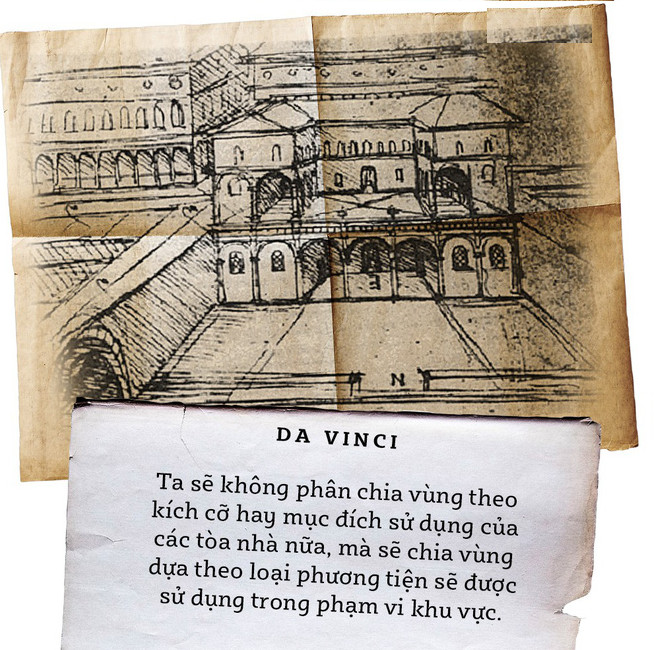 N
DA VINCI
Ta sẽ không phân chia vùng theo
kích cỡ hay mục đích sử dụng của
các tòa nhà nữa, mà sẽ chia vùng
dựa theo loại phương tiện sẽ được
sử dụng trong phạm vi khu vực.